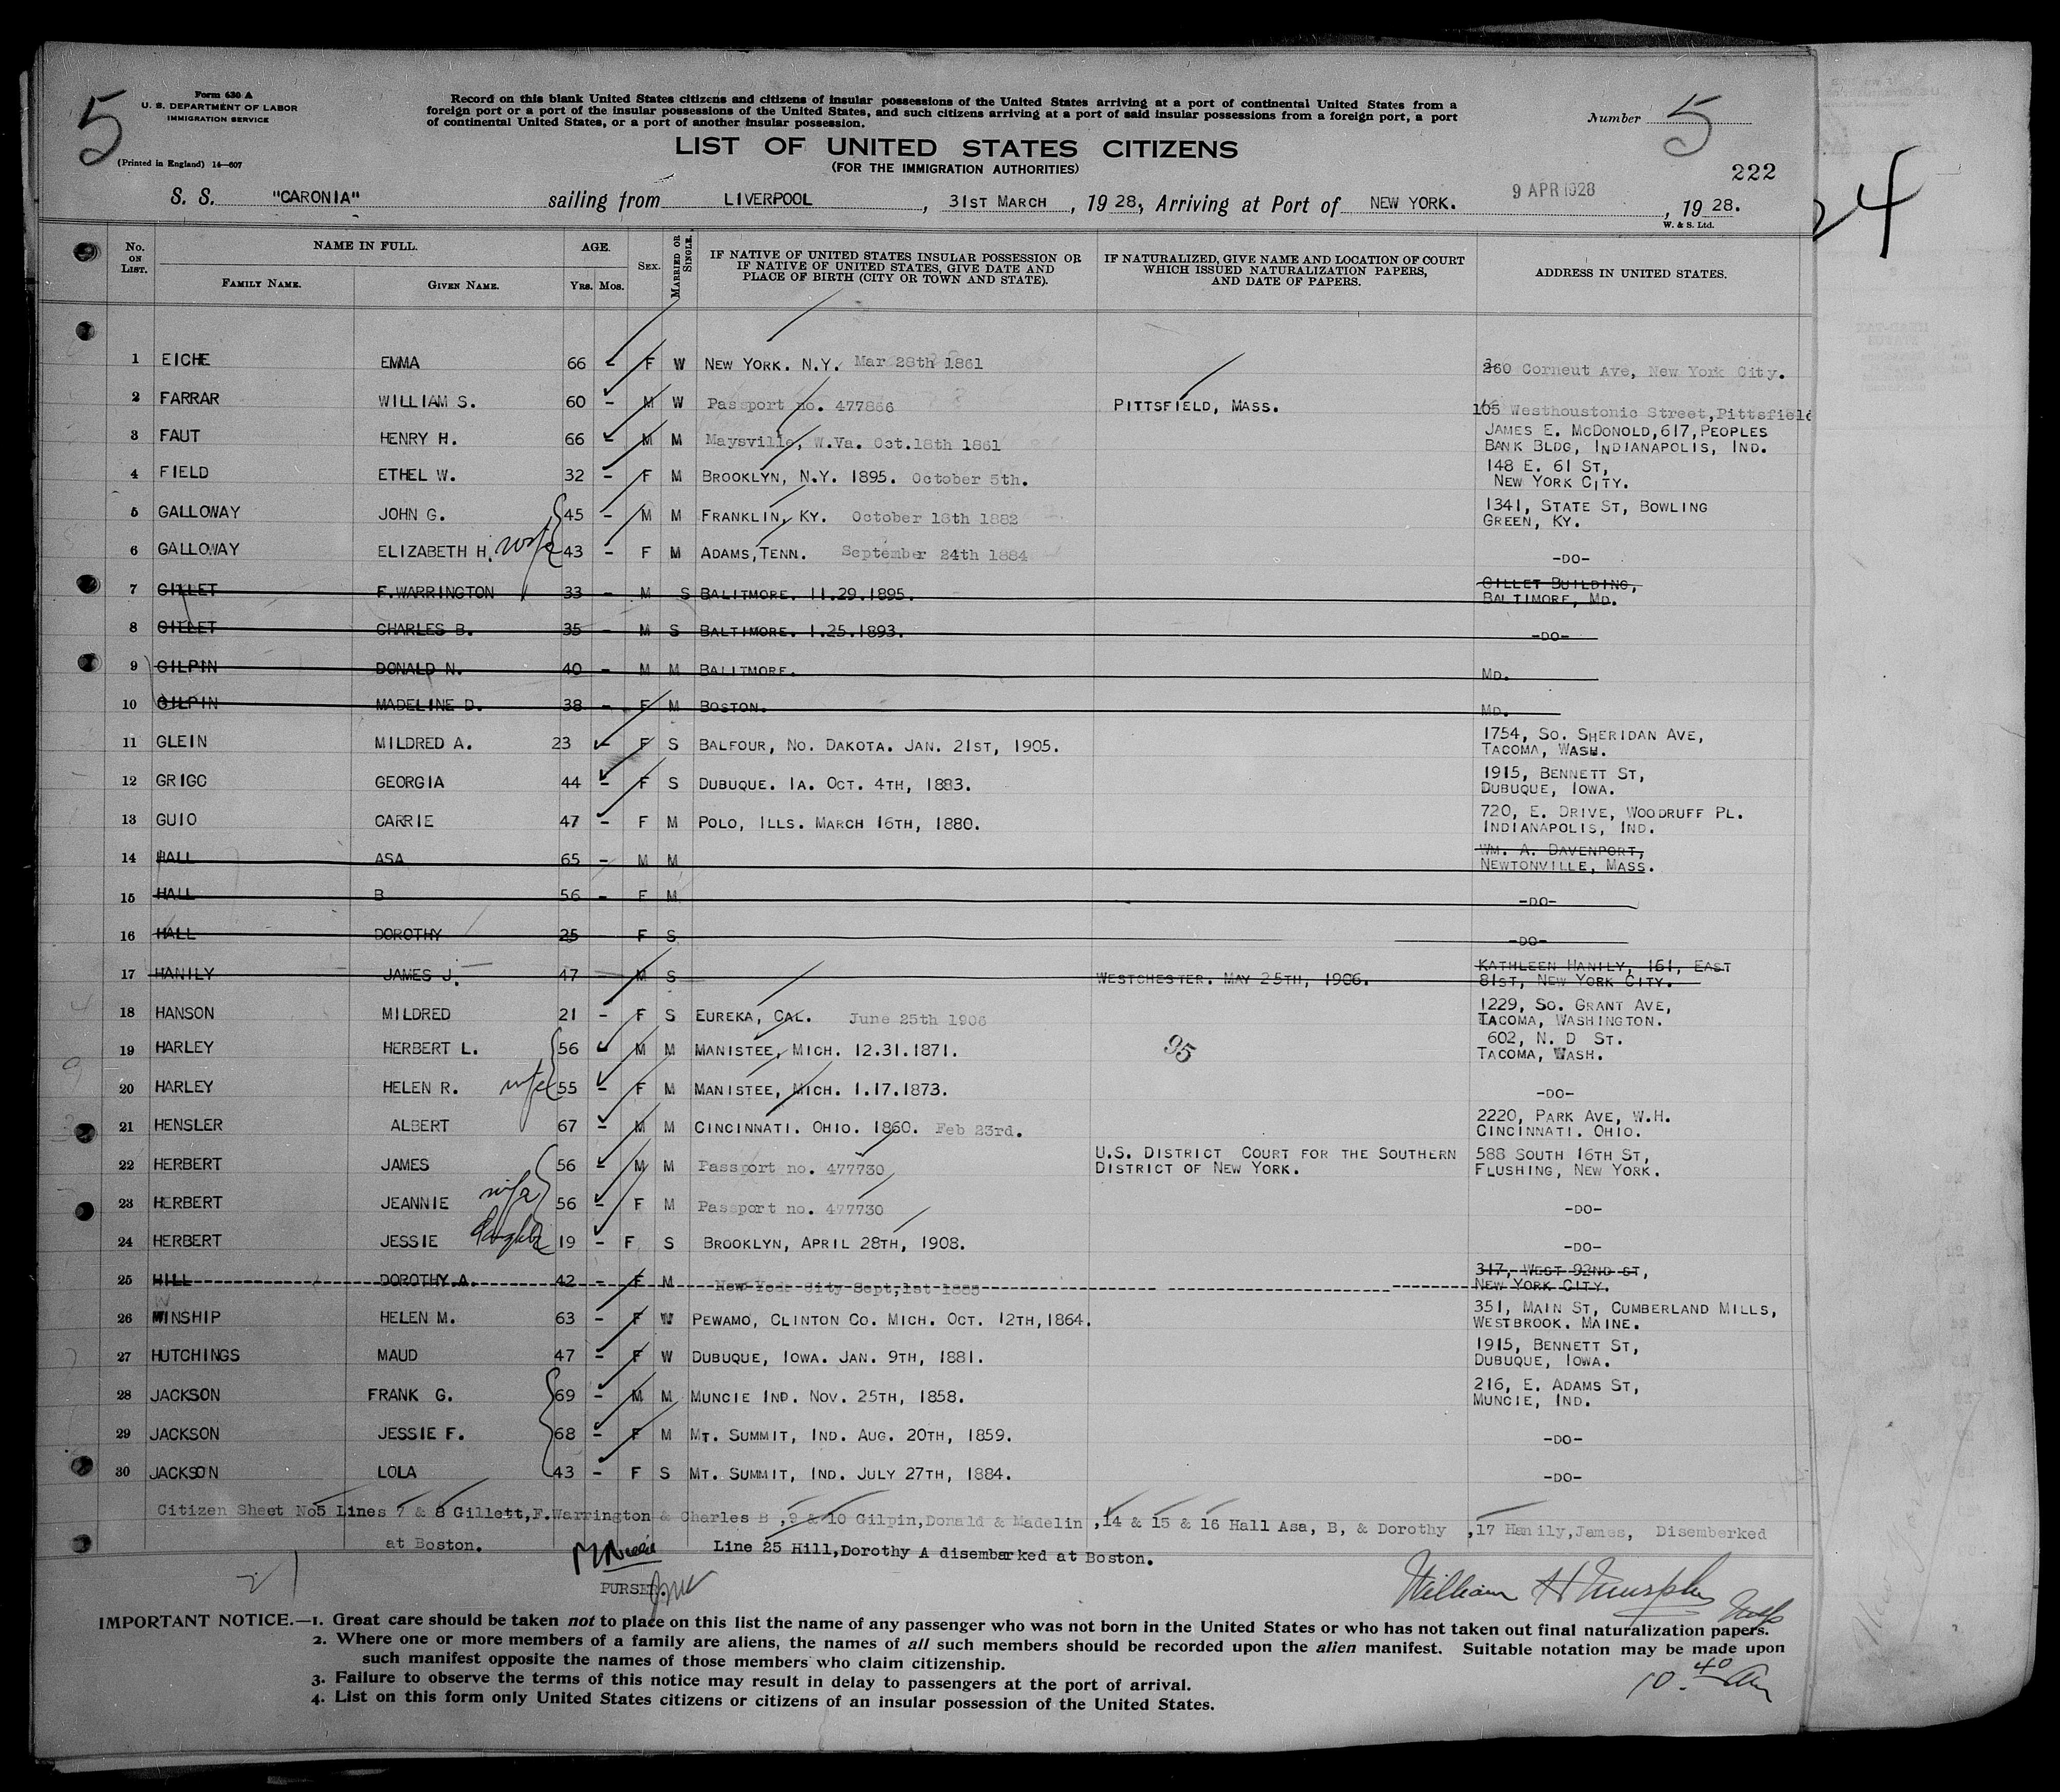 5
Form 630 A
U. S. DEPARTMENT OF LABOR
IMMIGRATION SERVICE
(Printed in England) 14—607
Record on this blank United States citizens and citizens of insular possessions of the United States arriving at a port of continental United States from a
foreign port or a port of the insular possessions of the United States, and such citizens arriving at a port of said insular possessions from a foreign port, a port
of continental United States, or a port of another insular possession.
Number 5
LIST OF UNITED STATES CITIZENS
(FOR THE IMMIGRATION AUTHORITIES)
222
24
S. S. "CARONIA" sailing from LIVERPOOL, 31ST MARCH, 19 28, Arriving at Port of NEW YORK. 9 APR 1928, 19 28.
W. & S. Ltd.
No. ON LIST. NAME IN FULL. AGE. SEX. MARRIED OR SINGLE. IF NATIVE OF UNITED STATES INSULAR POSSESSION OR IF NATIVE OF UNITED STATES, GIVE DATE AND PLACE OF BIRTH (CITY OR TOWN AND STATE). IF NATURALIZED, GIVE NAME AND LOCATION OF COURT WHICH ISSUED NATURALIZATION PAPERS, AND DATE OF PAPERS. ADDRESS IN UNITED STATES.
FAMILY NAME. GIVEN NAME. YRS. MOS.
1 EICHE EMMA 66 - F W NEW YORK. N.Y. Mar 28th 1861 260 Corneut Ave, New York City.
2 FARRAR WILLIAM S. 60 - M W Passport no. 477866 PITTSFIELD, MASS. 105 Westhoustonic Street,Pittsfield
3 FAUT HENRY H. 66 - M M Maysville, W.Va. Oct.18th 1861 JAMES E. MCDONOLD,617,PEOPLES
BANK BLDG, INDIANAPOLIS, IND.
4 FIELD ETHEL W. 32 - F M BROOKLYN, N.Y. 1895. October 5th. 148 E. 61 ST,
NEW YORK CITY.
5 GALLOWAY JOHN G. 45 - M M FRANKLIN, KY. October 18th 1882 1341, STATE ST, BOWLING
GREEN, KY.
6 GALLOWAY ELIZABETH H. wife 43 - F M ADAMS,TENN. September 24th 1884 -DO-
7 GILLET F.WARRINGTON 33 - M S BALITMORE. 11.29.1895. GILLET BUILDING,
BALTIMORE, MD.
8 GILLET CHARLES B. 35 - M S BALTIMORE. 1.25.1893. -DO-
9 GILPIN DONALD N. 40 - M M BALITMORE. MD.
10 GILPIN MADELINE D. 38 - F M BOSTON. MD.
11 GLEIN MILDRED A. 23 - F S BALFOUR, NO. DAKOTA. JAN. 21ST, 1905. 1754, SO. SHERIDAN AVE,
TACOMA, WASH.
12 GRIGG GEORGIA 44 - F S DUBUQUE. IA. OCT. 4TH, 1883. 1915, BENNETT ST,
DUBUQUE, IOWA.
13 GUIO CARRIE 47 - F M POLO, ILLS. MARCH 16TH, 1880. 720, E. DRIVE, WOODRUFF PL.
INDIANAPOLIS, IND.
14 HALL ASA 65 - M M WM. A. DAVENPORT,
NEWTONVILLE, MASS.
15 HALL B 56 - F M -DO-
16 HALL DOROTHY 25 F S -DO-
17 HANILY JAMES J. 47 - M S WESTCHESTER. MAY 25TH, 1906. KATHLEEN HANILY, 161, EAST
81ST, NEW YORK CITY.
18 HANSON MILDRED 21 - F S EUREKA, CAL. June 25th 1906 1229, SO. GRANT AVE,
TACOMA, WASHINGTON.
19 HARLEY HERBERT L. 56 - M M MANISTEE, MICH. 12.31.1871. 95 602, N. D ST.
TACOMA, WASH.
20 HARLEY HELEN R. wife 55 - F M MANISTEE, MICH. 1.17.1873. -DO-
21 HENSLER ALBERT 67 - M M CINCINNATI. OHIO. 1860. Feb 23rd. 2220, PARK AVE, W.H.
CINCINNATI. OHIO.
22 HERBERT JAMES 56 - M M Passport no. 477730 U.S. DISTRICT COURT FOR THE SOUTHERN DISTRICT OF NEW YORK. 588 SOUTH 16TH ST,
FLUSHING, NEW YORK.
23 HERBERT JEANNIE wife 56 - F M Passport no. 477730 -DO-
24 HERBERT JESSIE daughter 19 - F S BROOKLYN, APRIL 28TH, 1908. -DO-
25 HILL DOROTHY A. 42 - F M New York City Sept,1st 1885 317, WEST 92ND ST,
NEW YORK CITY.
26 WINSHIP HELEN M. 63 - F W PEWAMO, CLINTON CO. MICH. OCT. 12TH,1864. 351, MAIN ST, CUMBERLAND MILLS,
WESTBROOK. MAINE.
27 HUTCHINGS MAUD 47 - F W DUBUQUE, IOWA. JAN. 9TH, 1881. 1915, BENNETT ST,
DUBUQUE, IOWA.
28 JACKSON FRANK G. 69 - M M MUNCIE IND. NOV. 25TH, 1858. 216, E. ADAMS ST,
MUNCIE, IND.
29 JACKSON JESSIE F. 68 - F M MT. SUMMIT, IND. AUG. 20TH, 1859. -DO-
30 JACKSON LOLA 43 - F S MT. SUMMIT, IND. JULY 27TH, 1884. -DO-
Citizen Sheet No5 Lines 7 & 8 Gillett,F.Warrington & Charles B ,9 & 10 Gilpin,Donald & Madelin ,14 & 15 & 16 Hall Asa, B, & Dorothy ,17 Hanily,James, Disemberked
at Boston. Line 25 Hill,Dorothy A disembarked at Boston.
PURSER.
William H Murphy
21
IMPORTANT NOTICE.—1. Great care should be taken not to place on this list the name of any passenger who was not born in the United States or who has not taken out final naturalization papers.
2. Where one or more members of a family are aliens, the names of all such members should be recorded upon the alien manifest. Suitable notation may be made upon
such manifest opposite the names of those members who claim citizenship.
3. Failure to observe the terms of this notice may result in delay to passengers at the port of arrival.
4. List on this form only United States citizens or citizens of an insular possession of the United States.
10.40 Am